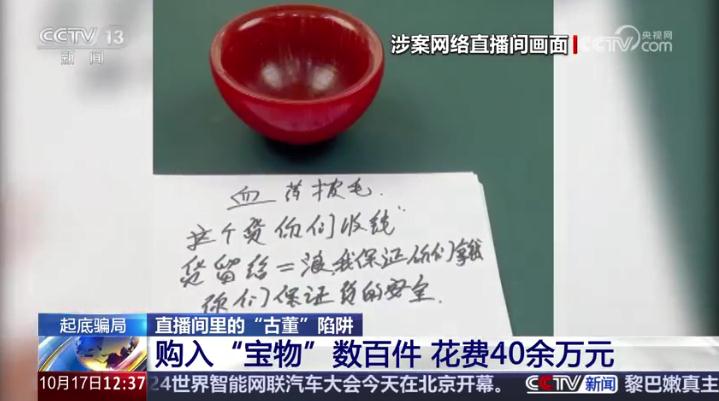 CCTV 13
新闻
涉案网络直播间画面
央视网
CCTV.com
血荷披毛.
这个货你们收线
货留给=浪,我保证你们拿钱
你们保证货的安全.
起底骗局
直播间里的“古董”陷阱
购入“宝物”数百件 花费40余万元
10月17日12:37
24世界智能网联汽车大会今天在北京开幕。
CCTV新闻
黎巴嫩真主